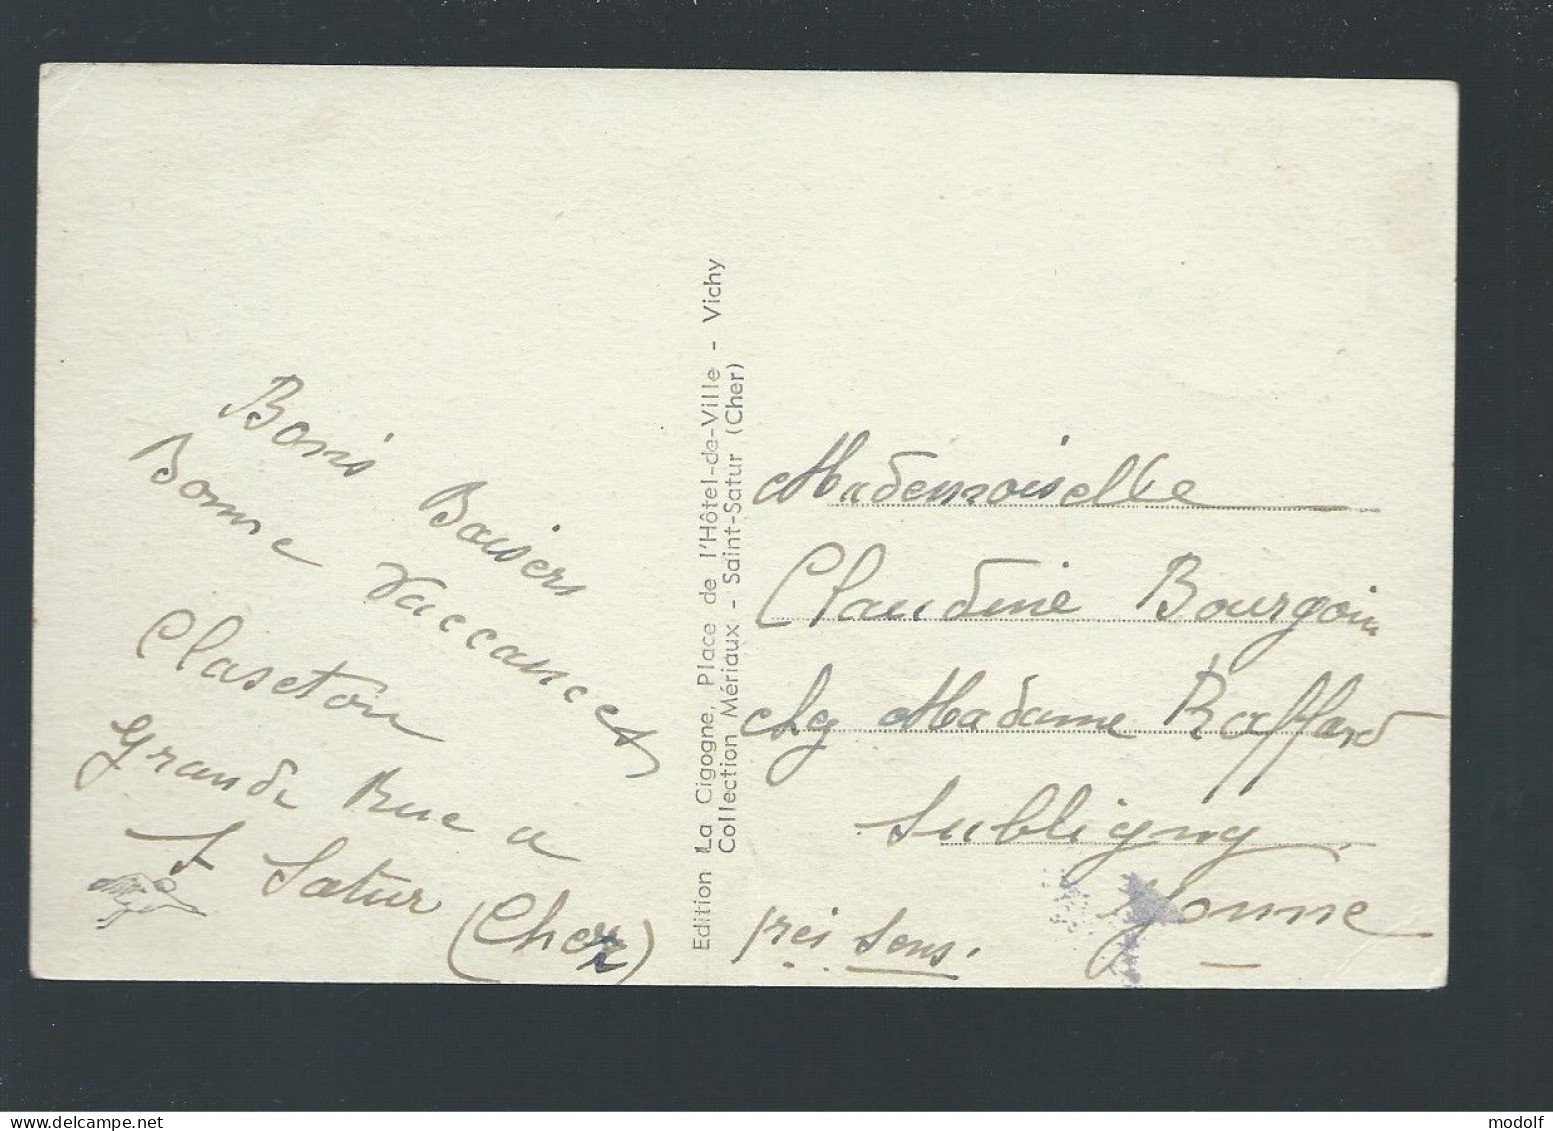 Bons Baisers
Bonne Vaccances
Claseton
Grande Rue a
S Satur
(Cher)
Edition La Cigogne, Place de l'Hôtel-de-Ville - Vichy
Collection Mériaux - Saint-Satur (Cher)
Mademoiselle
Claudine Bourgoin
chez Madame Raffard
Subligny
près Sens. Yonne
www.delcampe.net
modolf